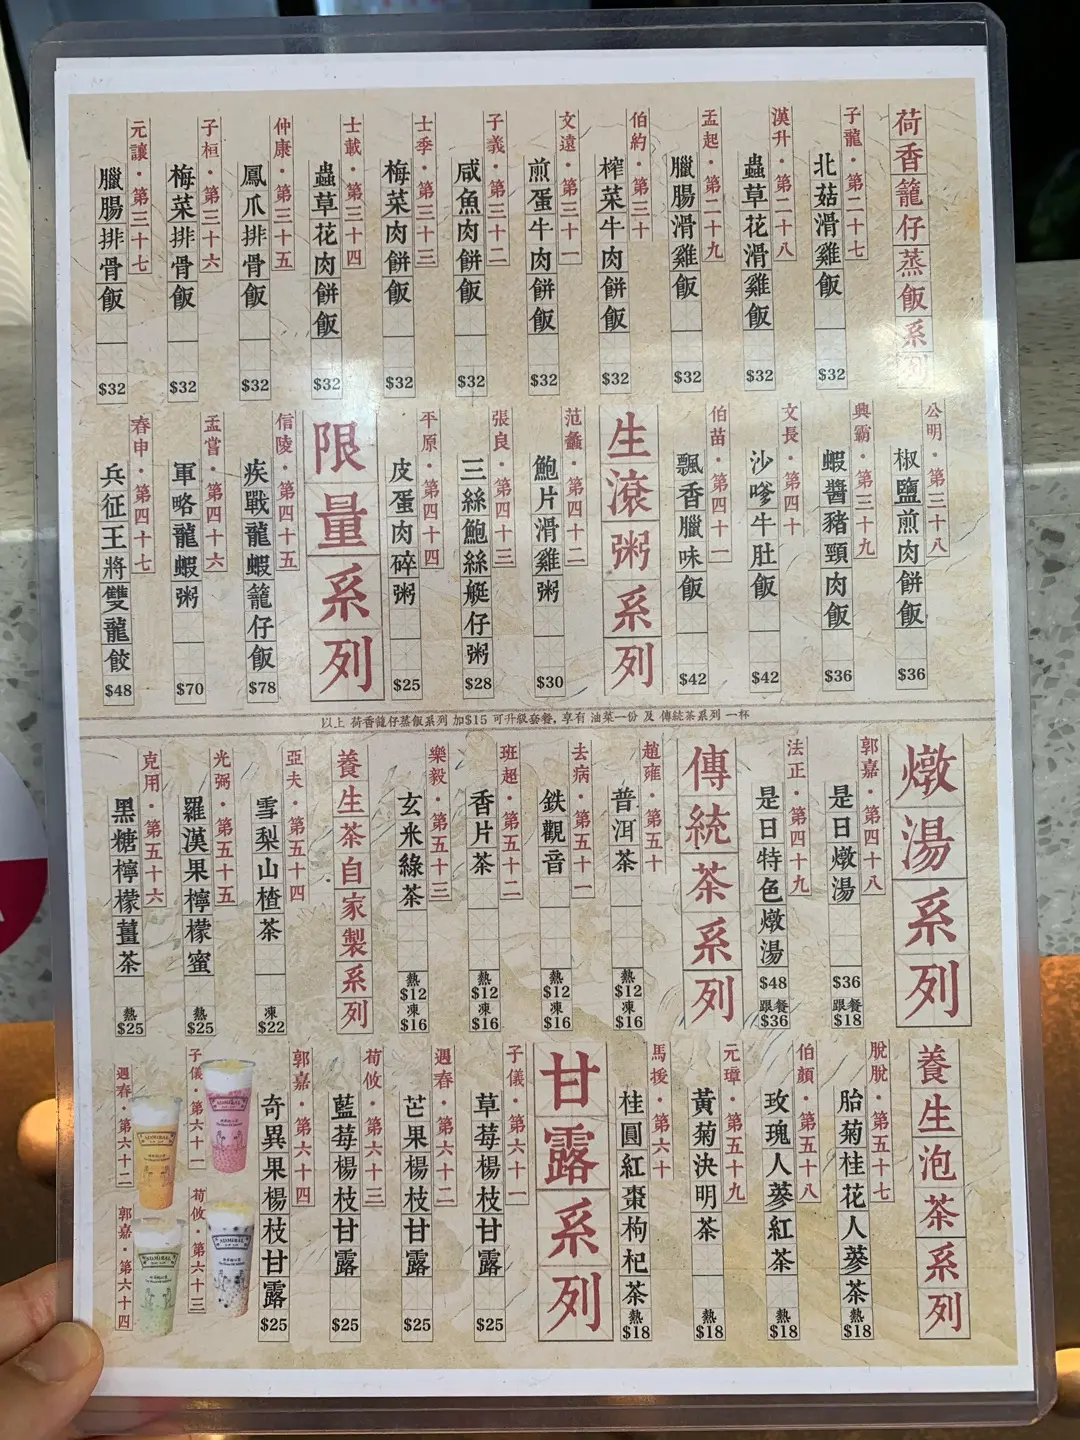 荷香籠仔蒸飯系列
子龍・第二十七
北菇滑雞飯
$32
漢升・第二十八
蟲草花滑雞飯
$32
孟起・第二十九
臘腸滑雞飯
$32
伯約・第三十
榨菜牛肉餅飯
$32
文遠・第三十一
煎蛋牛肉餅飯
$32
子義・第三十二
咸魚肉餅飯
$32
士季・第三十三
梅菜肉餅飯
$32
士載・第三十四
蟲草花肉餅飯
$32
仲康・第三十五
鳳爪排骨飯
$32
子桓・第三十六
梅菜排骨飯
$32
元讓・第三十七
臘腸排骨飯
$32
公明・第三十八
椒鹽煎肉餅飯
$36
興霸・第三十九
蝦醬豬頸肉飯
$36
文長・第四十
沙嗲牛肚飯
$42
伯苗・第四十一
飄香臘味飯
$42
生滾粥系列
范蠡・第四十二
鮑片滑雞粥
$30
張良・第四十三
三絲鮑絲艇仔粥
$28
平原・第四十四
皮蛋肉碎粥
$25
限量系列
信陵・第四十五
疾戰龍蝦籠仔飯
$78
孟嘗・第四十六
軍略龍蝦粥
$70
春申・第四十七
兵征王將雙龍餃
$48
以上 荷香籠仔蒸飯系列 加$15 可升級套餐, 享有 油菜一份 及 傳統茶系列 一杯
燉湯系列
郭嘉・第四十八
是日燉湯
$36
跟餐
$18
法正・第四十九
是日特色燉湯
$48
跟餐
$36
傳統茶系列
趙雍・第五十
普洱茶
熱
$12
凍
$16
去病・第五十一
鉄觀音
熱
$12
凍
$16
班超・第五十二
香片茶
熱
$12
凍
$16
樂毅・第五十三
玄米綠茶
熱
$12
凍
$16
養生茶自家製系列
亞夫・第五十四
雪梨山楂茶
凍
$22
光弼・第五十五
羅漢果檸檬蜜
熱
$25
克用・第五十六
黑糖檸檬薑茶
熱
$25
養生泡茶系列
脫脫・第五十七
胎菊桂花人蔘茶
熱
$18
伯顏・第五十八
玫瑰人蔘紅茶
熱
$18
元璋・第五十九
黃菊決明茶
熱
$18
馬援・第六十
桂圓紅棗枸杞茶
熱
$18
甘露系列
子儀・第六十一
草莓楊枝甘露
$25
遇春・第六十二
芒果楊枝甘露
$25
荀攸・第六十三
藍莓楊枝甘露
$25
郭嘉・第六十四
奇異果楊枝甘露
$25
子儀・第六十一
荀攸・第六十三
遇春・第六十二
郭嘉・第六十四
ADMIRAL
ADMIRAL
ADMIRAL
ADMIRAL